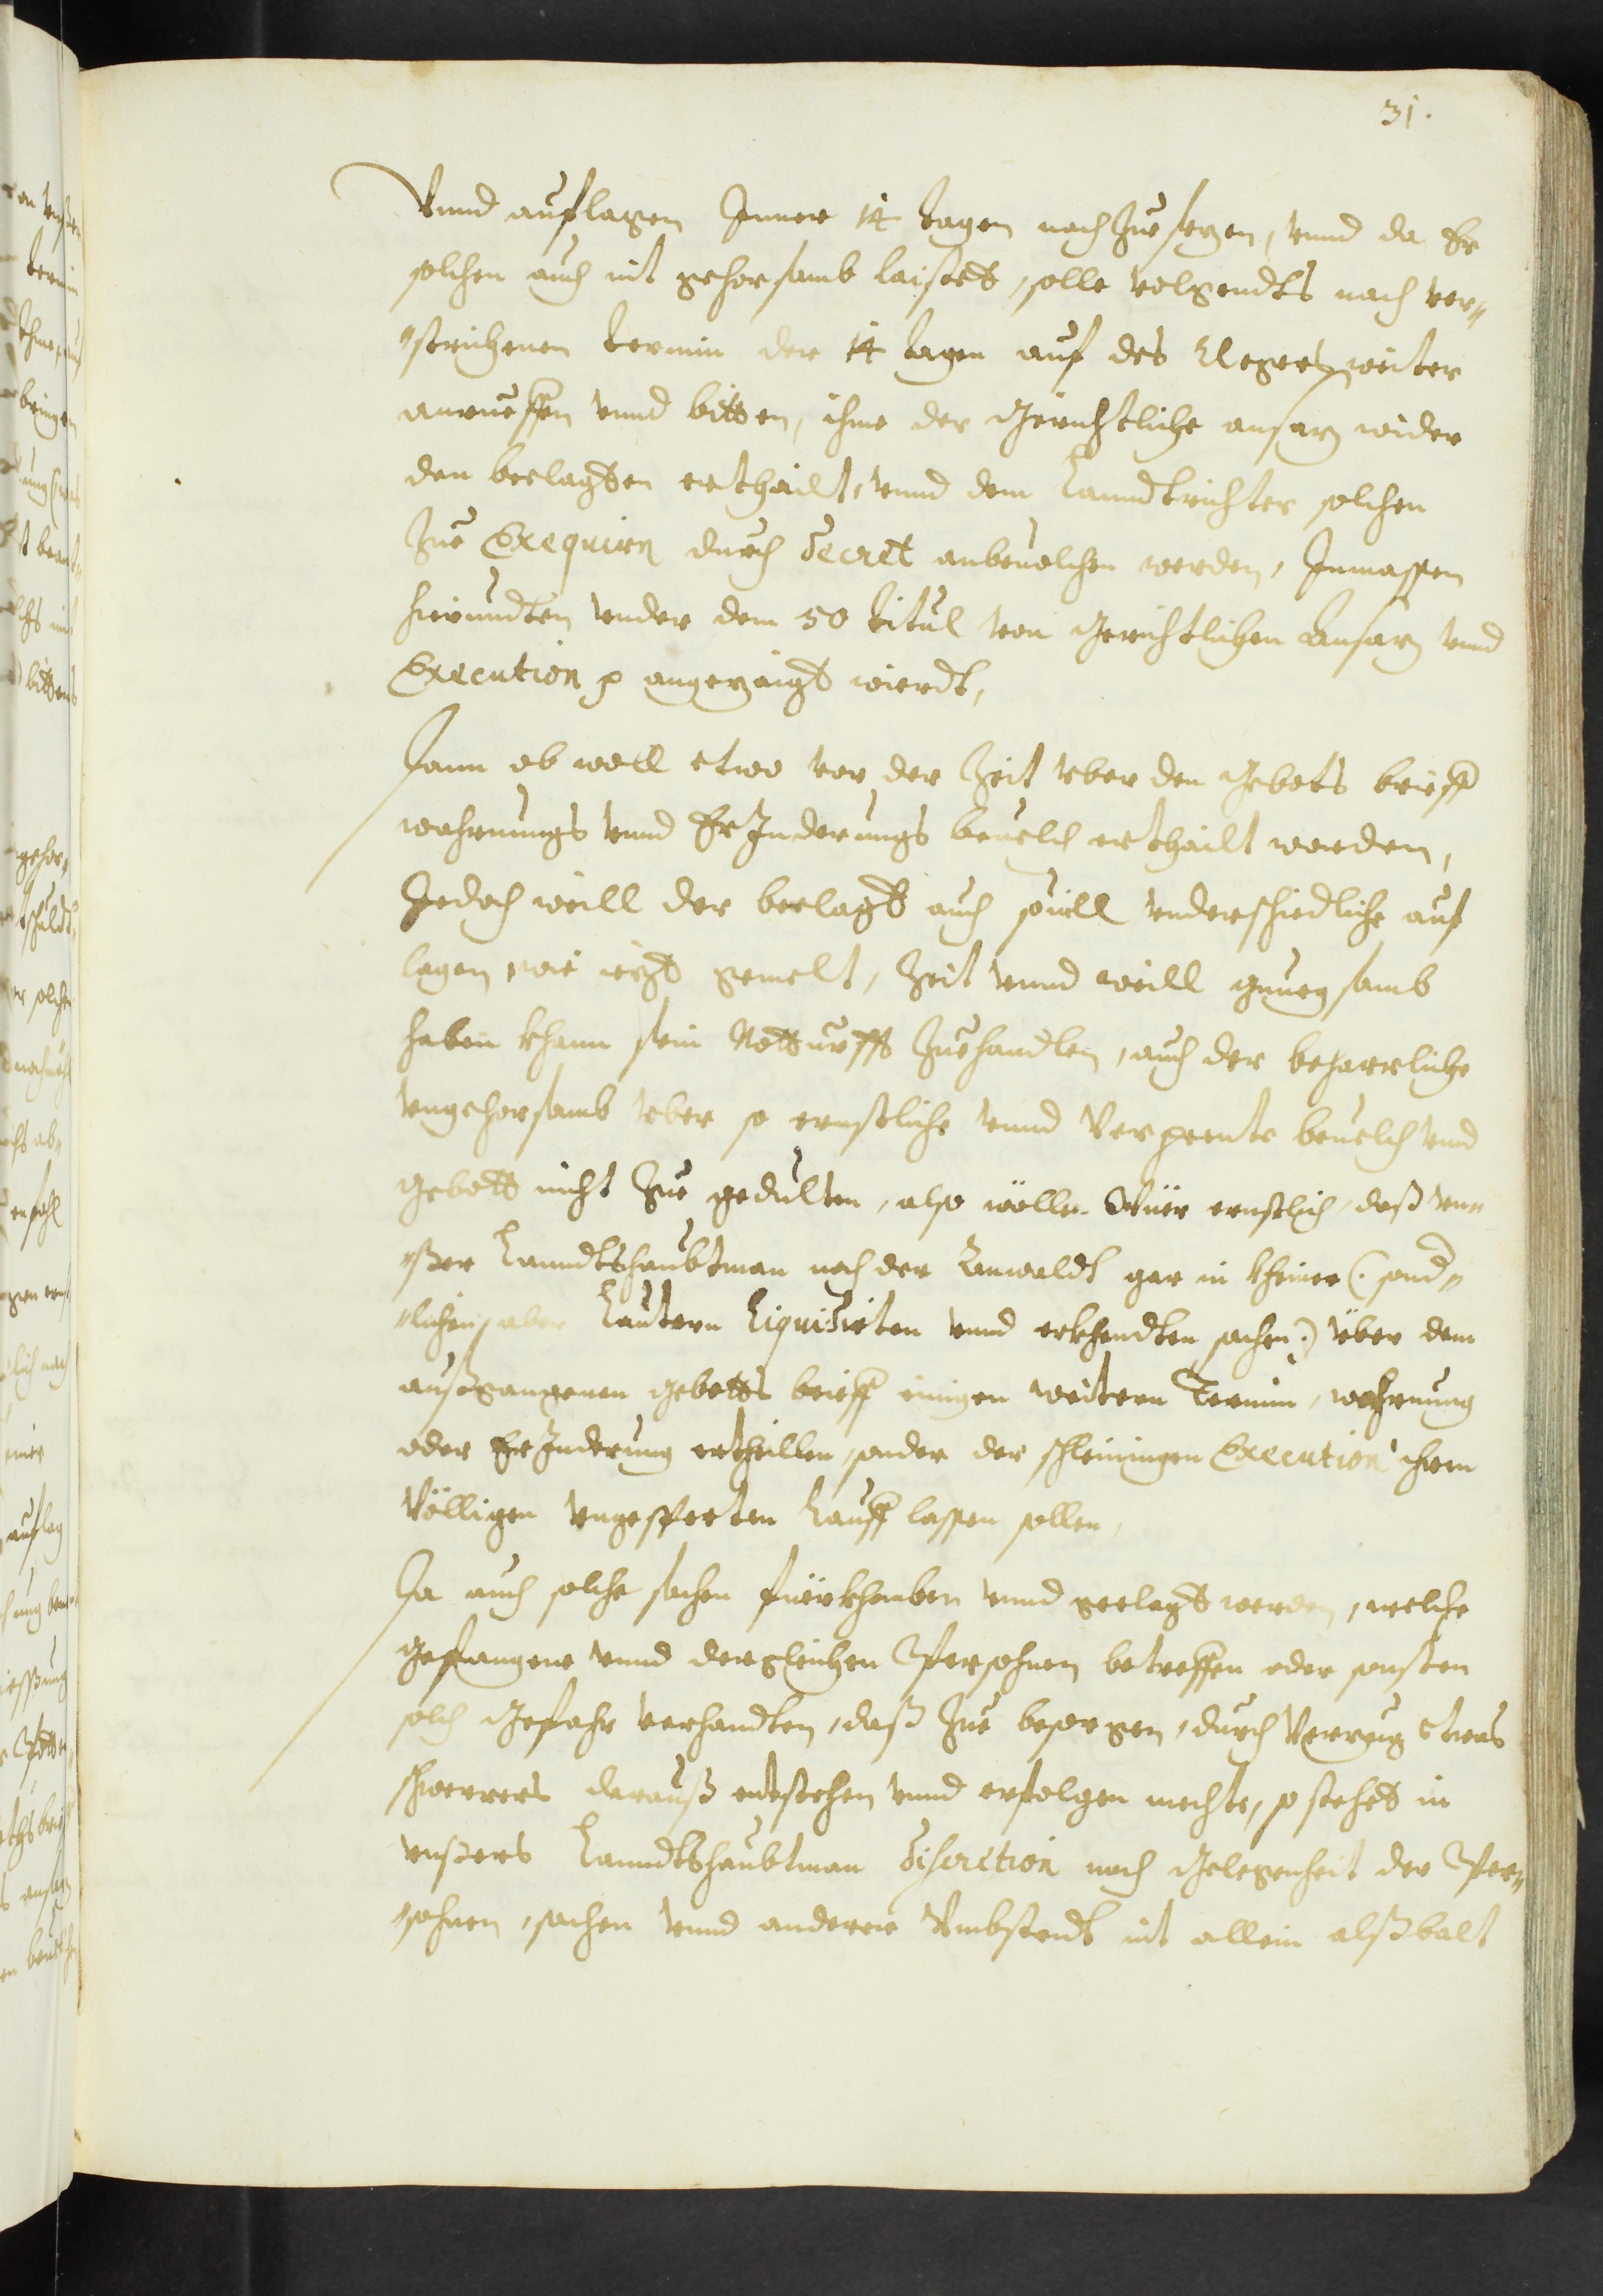 31.
Vnnd auflagen Inner 14 tagen nach Zue sezen, vnnd da Er
solchen auch nit gehorsamb laisted, solle volgendts nach ver„
„strichenen termin der 14 tagen auf des Clegers weiter
anrueffen vnnd bitten, ihme der Gerichtliche ansaz wider
den beclagten erthailt, vnnd dem Lanndtrichter solchen
Zue Exequirn durch Decret anbeuolchen werden, Inmassen
hieundten vnder dem 50 titul von Gerichtlichen Ansaz vnnd
Execution p angezaigt wierdt,
Dann ob woll etwo vor der Zeit vber den Gebots brieff
wahrnungs vnnd ErInderungs beuelch erthailt worden,
Jedoch weill der beclagt auch souill vnderschidliche auf
lagen wie iezt gemelt, Zeit vnnd weill gnuegsamb
haben khann sein Notturfft Zuehandlen, auch der beharrliche
vngehorsamb vber so ernstliche vnnd Verpeente beuelch vnnd
gebott nicht Zue gedulten, also wöllen Wüer ernstlich, daß vn„
„ßer Lanndtshaubtman noch der Anwaldt gar in kheiner (: sond„
„lichen aber Lautern Liquidirten vnnd erkhendten sachen :) über dem
außgangenen gebotts brieff einigen weitern Termin, wahrnung
oder ErInderung ertheillen, sonder der schleinigen Execution ihren
Völligen vngesperten Lauff lassen sollen,
Da auch solche sachen fürkhomben vnnd geclagt werden, welche
gefangene vnnd dergleichen Persohnen betreffen oder sonsten
solch Gefahr verhandten, daß Zue besorgen, durch Verzug etwas
schwerers darauß entstehen vnnd erfolgen mechte, so stehet in
vnßers Lanndtshaubtman Discretion nach Gelegenheit der Per„
„sohnen, sachen vnnd anderer Vmbstendt nit allein alßbalt